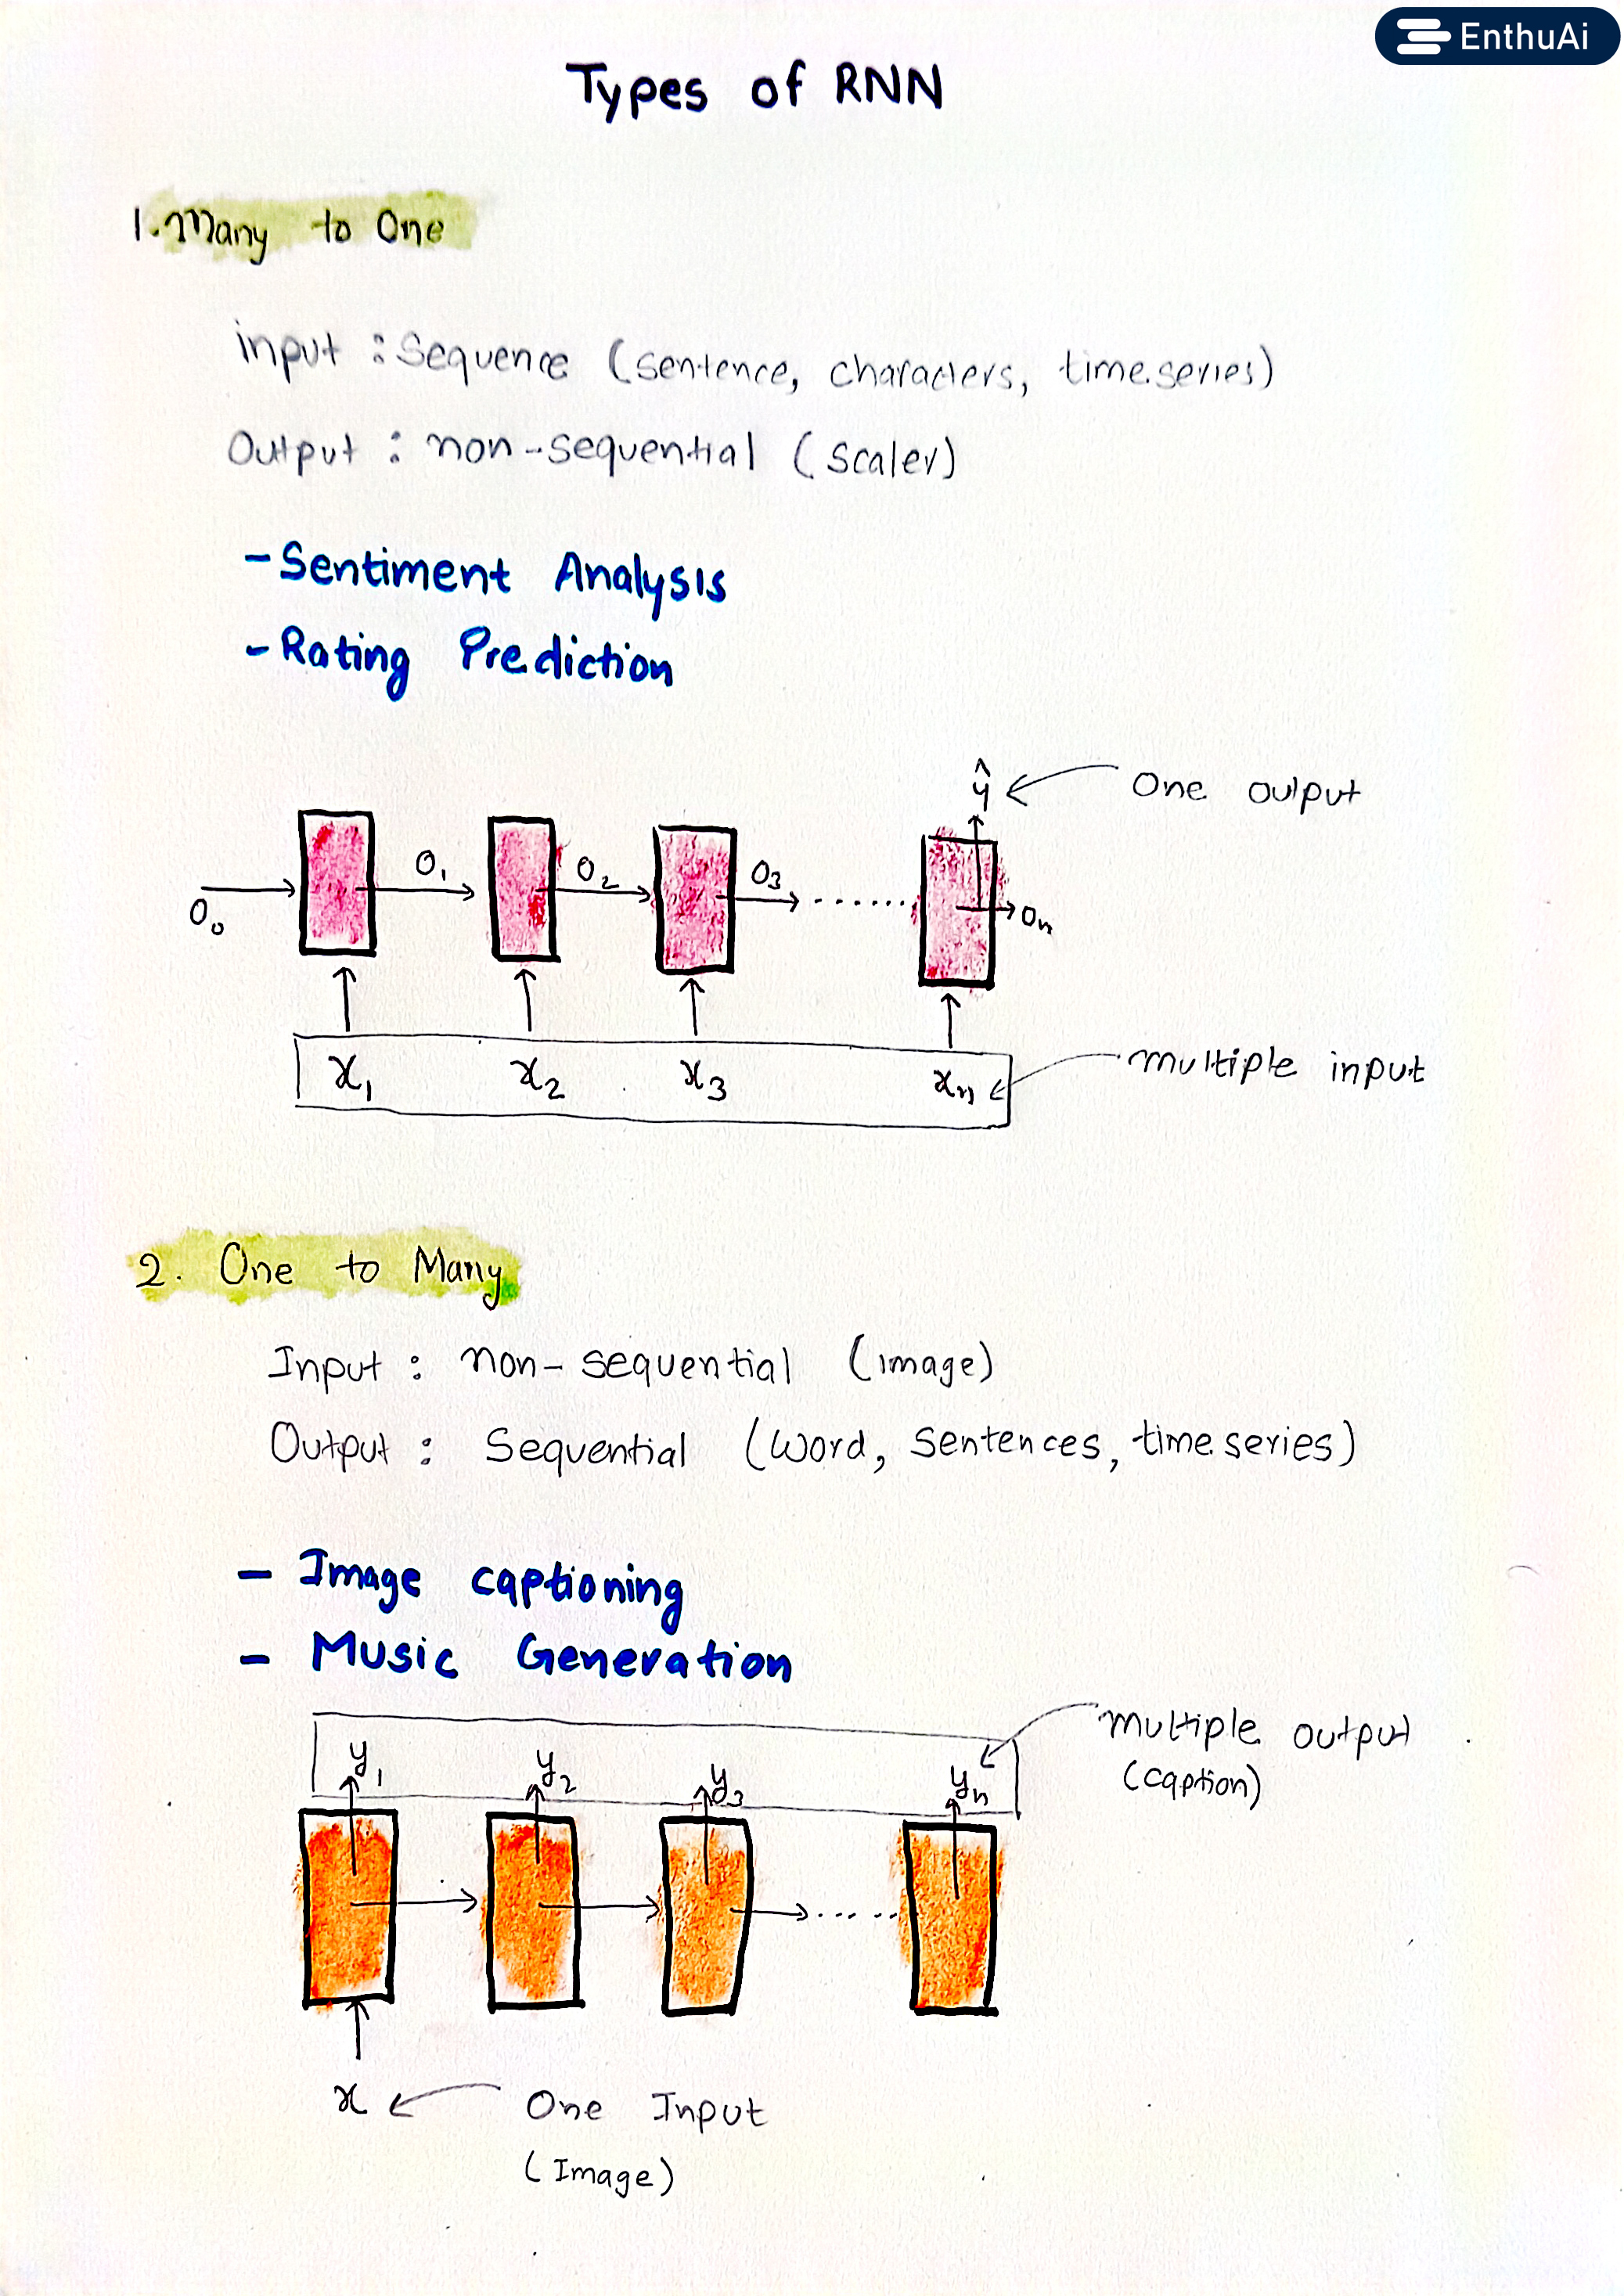 EnthuAi
Types of RNN
1. Many to One
input : Sequence (sentence, characters, time series)
Output : non-sequential (scaler)
- Sentiment Analysis
- Rating Prediction
ŷ One output
O₀ O₁ O₂ O₃ ...... Oₙ
x₁ x₂ x₃ xₙ multiple input
2. One to Many
Input : non-sequential (image)
Output : Sequential (word, sentences, time series)
- Image captioning
- Music Generation
multiple output
(caption)
y₁ y₂ y₃ yₙ
.....
x One Input
(Image)